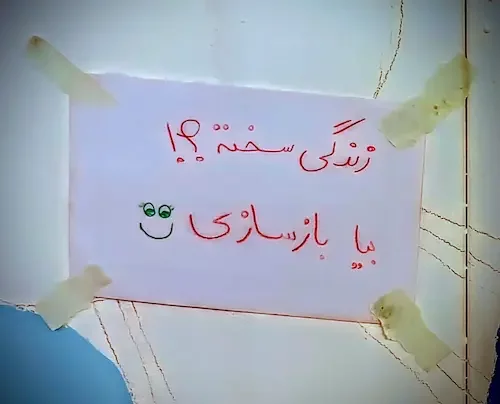 زندگی سخته ؟!
بیا بازسازی